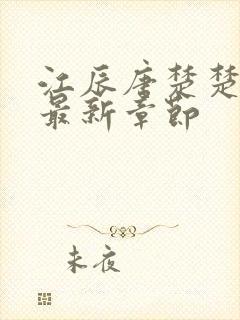 江辰唐楚楚
最新章节
未夜